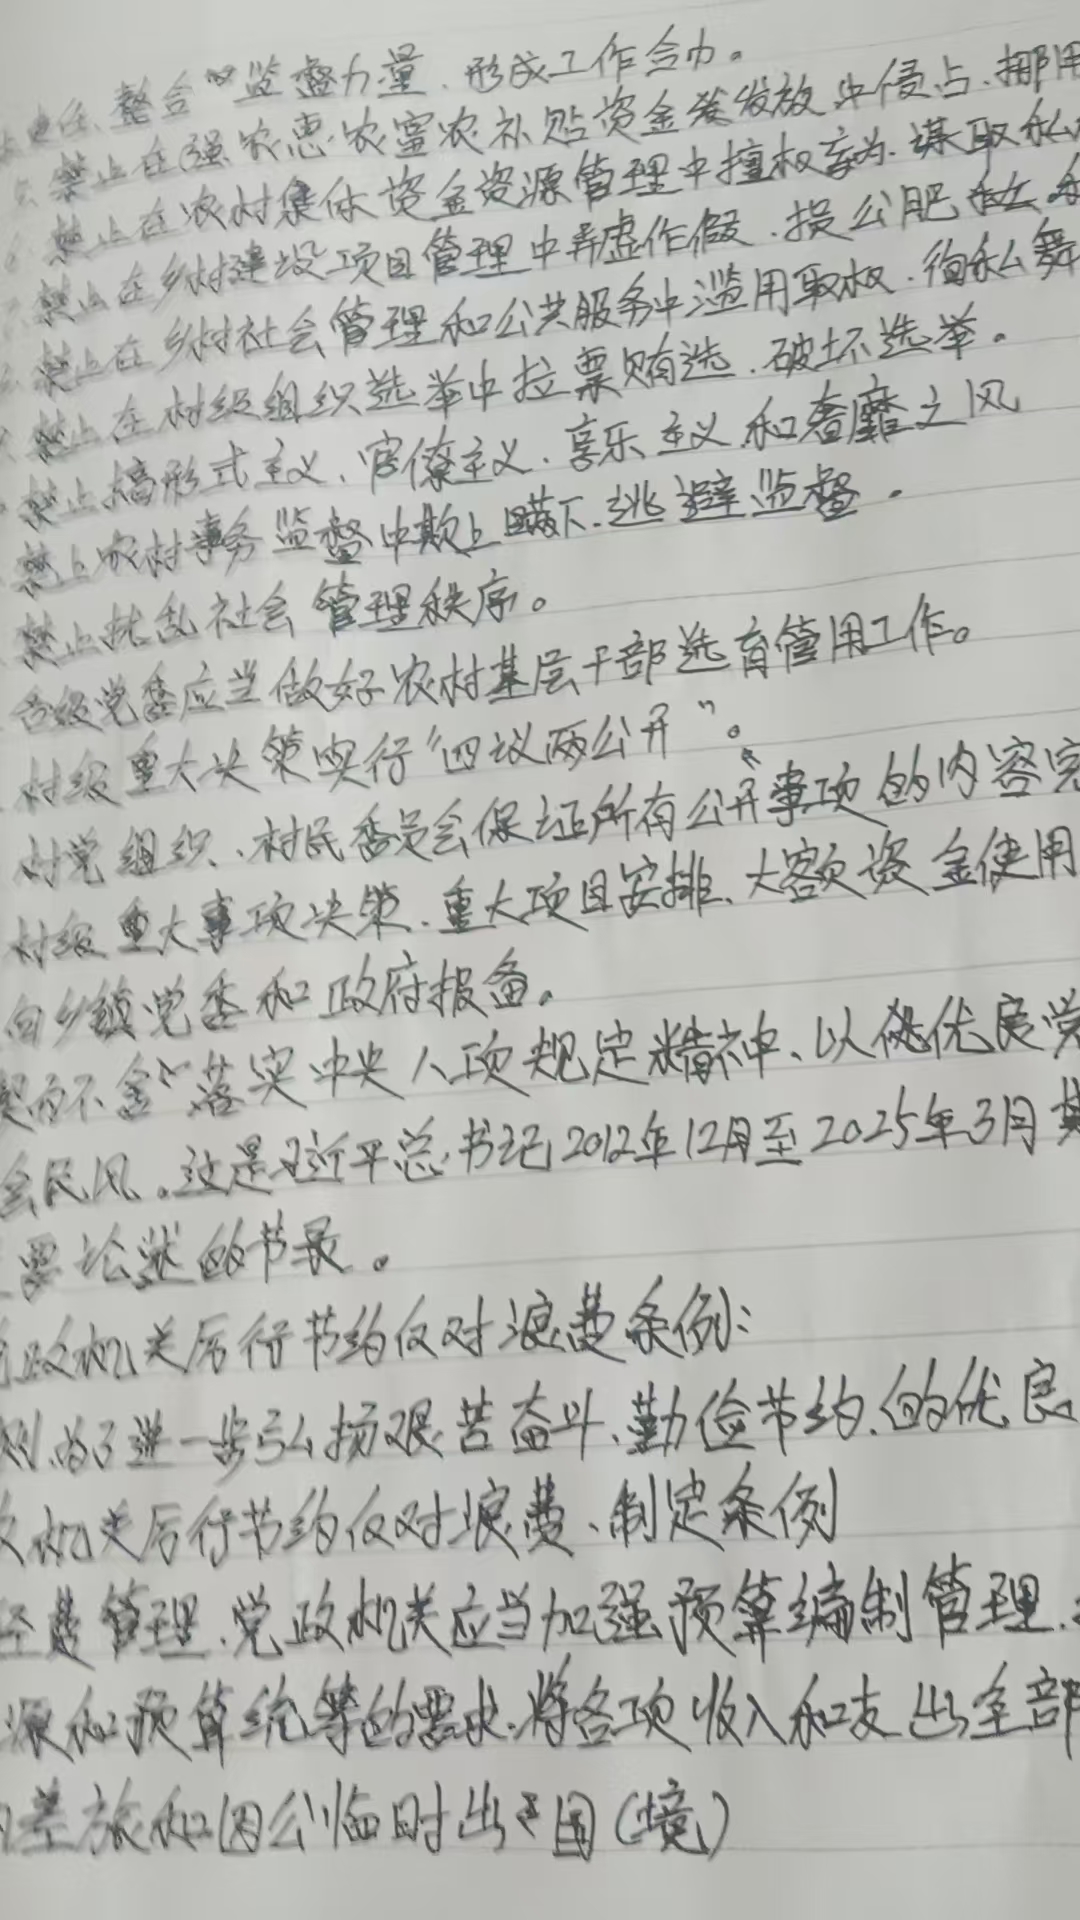 责任、整合"监督力量、形成工作合力。
禁止在强农惠农富农补贴资金发发放中侵占、挪用
禁止在农村集体资金资源管理中擅权妄为、谋取私
禁止在乡村建设项目管理中弄虚作假、损公肥私
禁止在乡村社会管理和公共服务中滥用职权、徇私舞
禁止在村级组织选举中拉票贿选、破坏选举。
禁止搞形式主义、官僚主义、享乐主义和奢靡之风
禁止农村事务监督中欺上瞒下、逃避监督。
禁止扰乱社会管理秩序。
各级党委应当做好农村基层干部选育管用工作。
村级重大决策实行"四议两公开"。
村党组织、村民委员会保证所有公开事项的内容完
村级重大事项决策、重大项目安排、大额资金使用
向乡镇党委和政府报备。
契而不舍"落实中央八项规定精神、以优良党
会民风。这是习近平总书记2012年12月至2025年3月其
要论述的节录。
政机关厉行节约反对浪费条例:
则、为了进一步弘扬艰苦奋斗、勤俭节约、的优良
机关厉行节约反对浪费、制定条例
经费管理、党政机关应当加强预算编制管理、
源和预算统筹的要求、将各项收入和支出全部
差旅和因公临时出国(境)